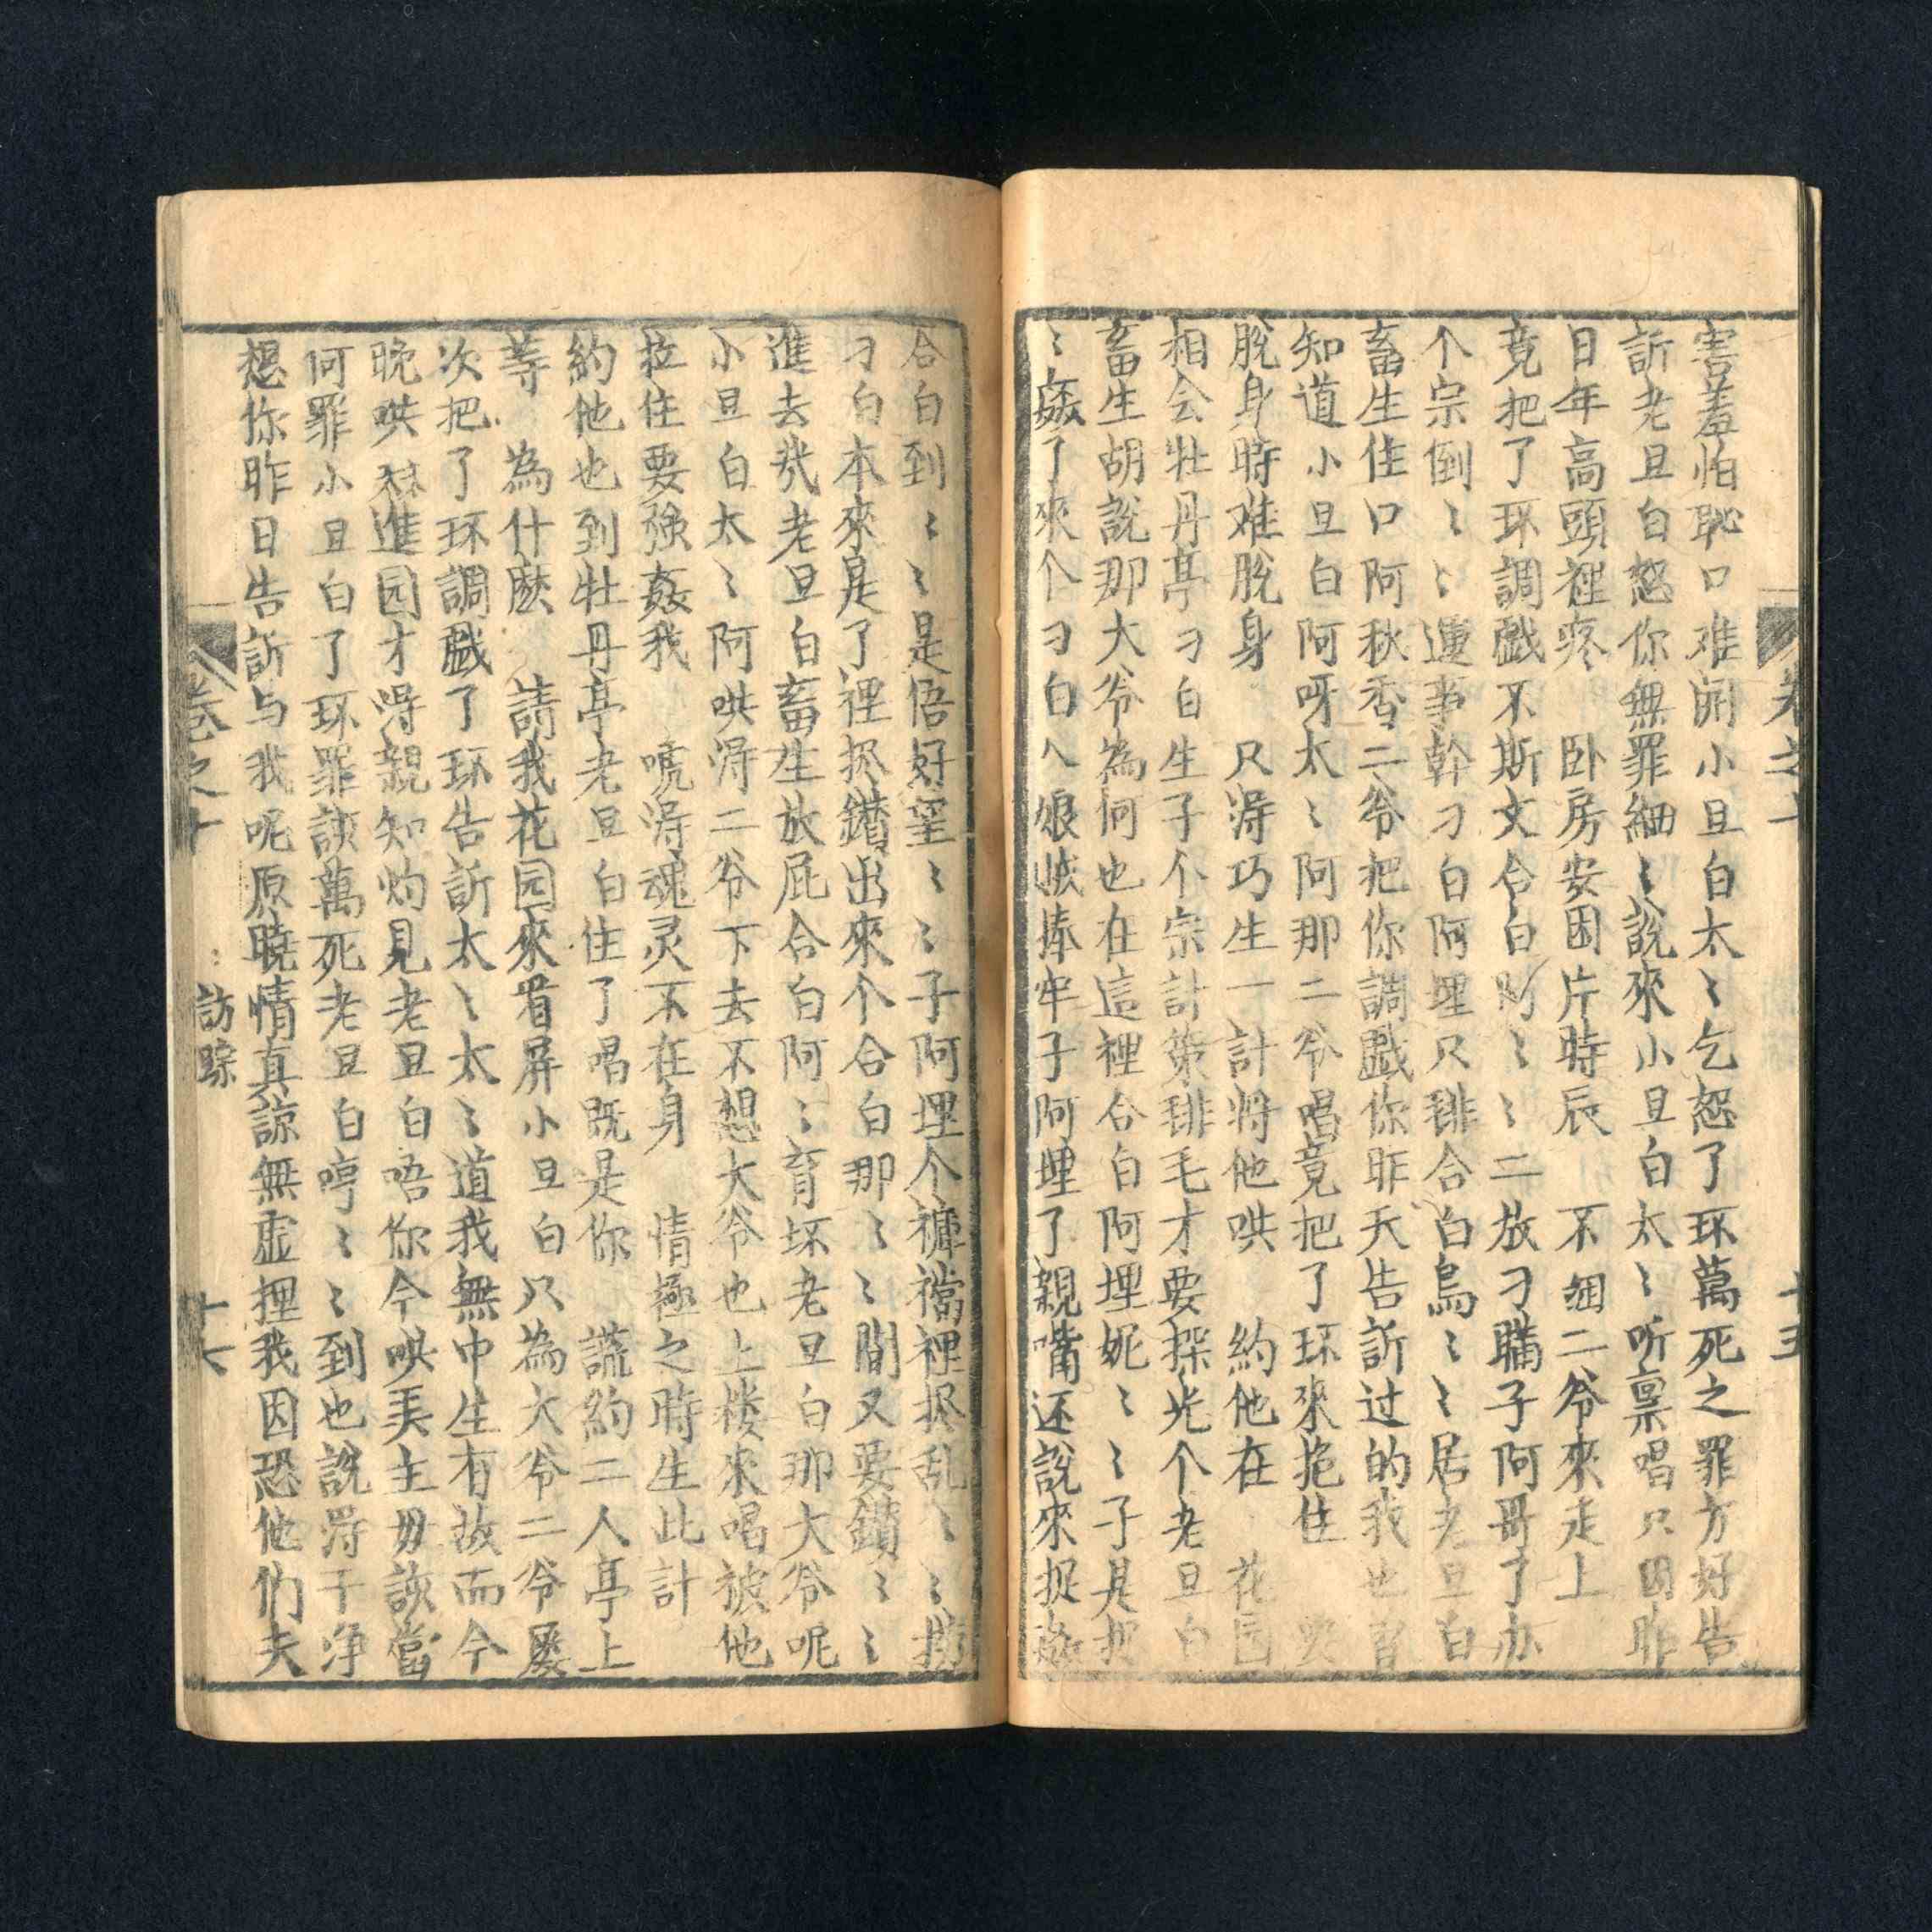 卷之十
十五
害羞怕恥口难開小旦白太〻乞恕了环萬死之罪方好告
訴老旦白恕你無罪細〻說來小旦白太〻听禀唱只因昨
日年高頭裡疼　卧房安困片時辰　不細二爷來走上
竟把了环調戲不斯文合白阿〻〻二放刁瞞子阿哥了办
个宗倒〻〻運事幹刁白阿埋只排合白鳥〻〻居老旦白
畜生住口阿秋香二爷把你調戲你昨天告訴过的我也
知道小旦白阿呀太〻阿那二爷唱竟把了环來抱住
脫身時难脫身　只淂巧生一計將他哄　約他在　花园
相会牡丹亭刁白生子个宗計策排毛才要探光个老旦白
畜生胡說那大爷為何也在這裡合白阿埋妮〻〻子是
〻姦了來个刁白入娘捧牢子阿埋了親嘴还說來捉姦
合白到〻〻是悟好〻〻子阿埋个褲襠裡抓乱〻〻
刁白本來是了裡抓鑽出來个合白那〻〻間又要鑽〻〻
進去哉老旦白畜生放屁合白阿〻育坏老旦白那大爷呢
小旦白太〻阿哄淂二爷下去不想大爷也上楼來唱被他
拉住要強姦我　唬淂魂灵不在身　情極之時生此計
約他也到牡丹亭老旦白住了唱既是你　謊約二人亭上
等　為什麽　請我花园來看屏小旦白只為大爷二爷屡
次把了环調戲了环告訴太〻太〻道我無中生有故而今
晚哄進园才淂親知灼見老旦白唔你今哄美主母該當
何罪小旦白了环罪該萬死老旦白哼〻〻到也說淂干净
想你昨日告訴与我呢原曉情真諒無虛捏我因恐他們夫
卷之十
訪踪
十六